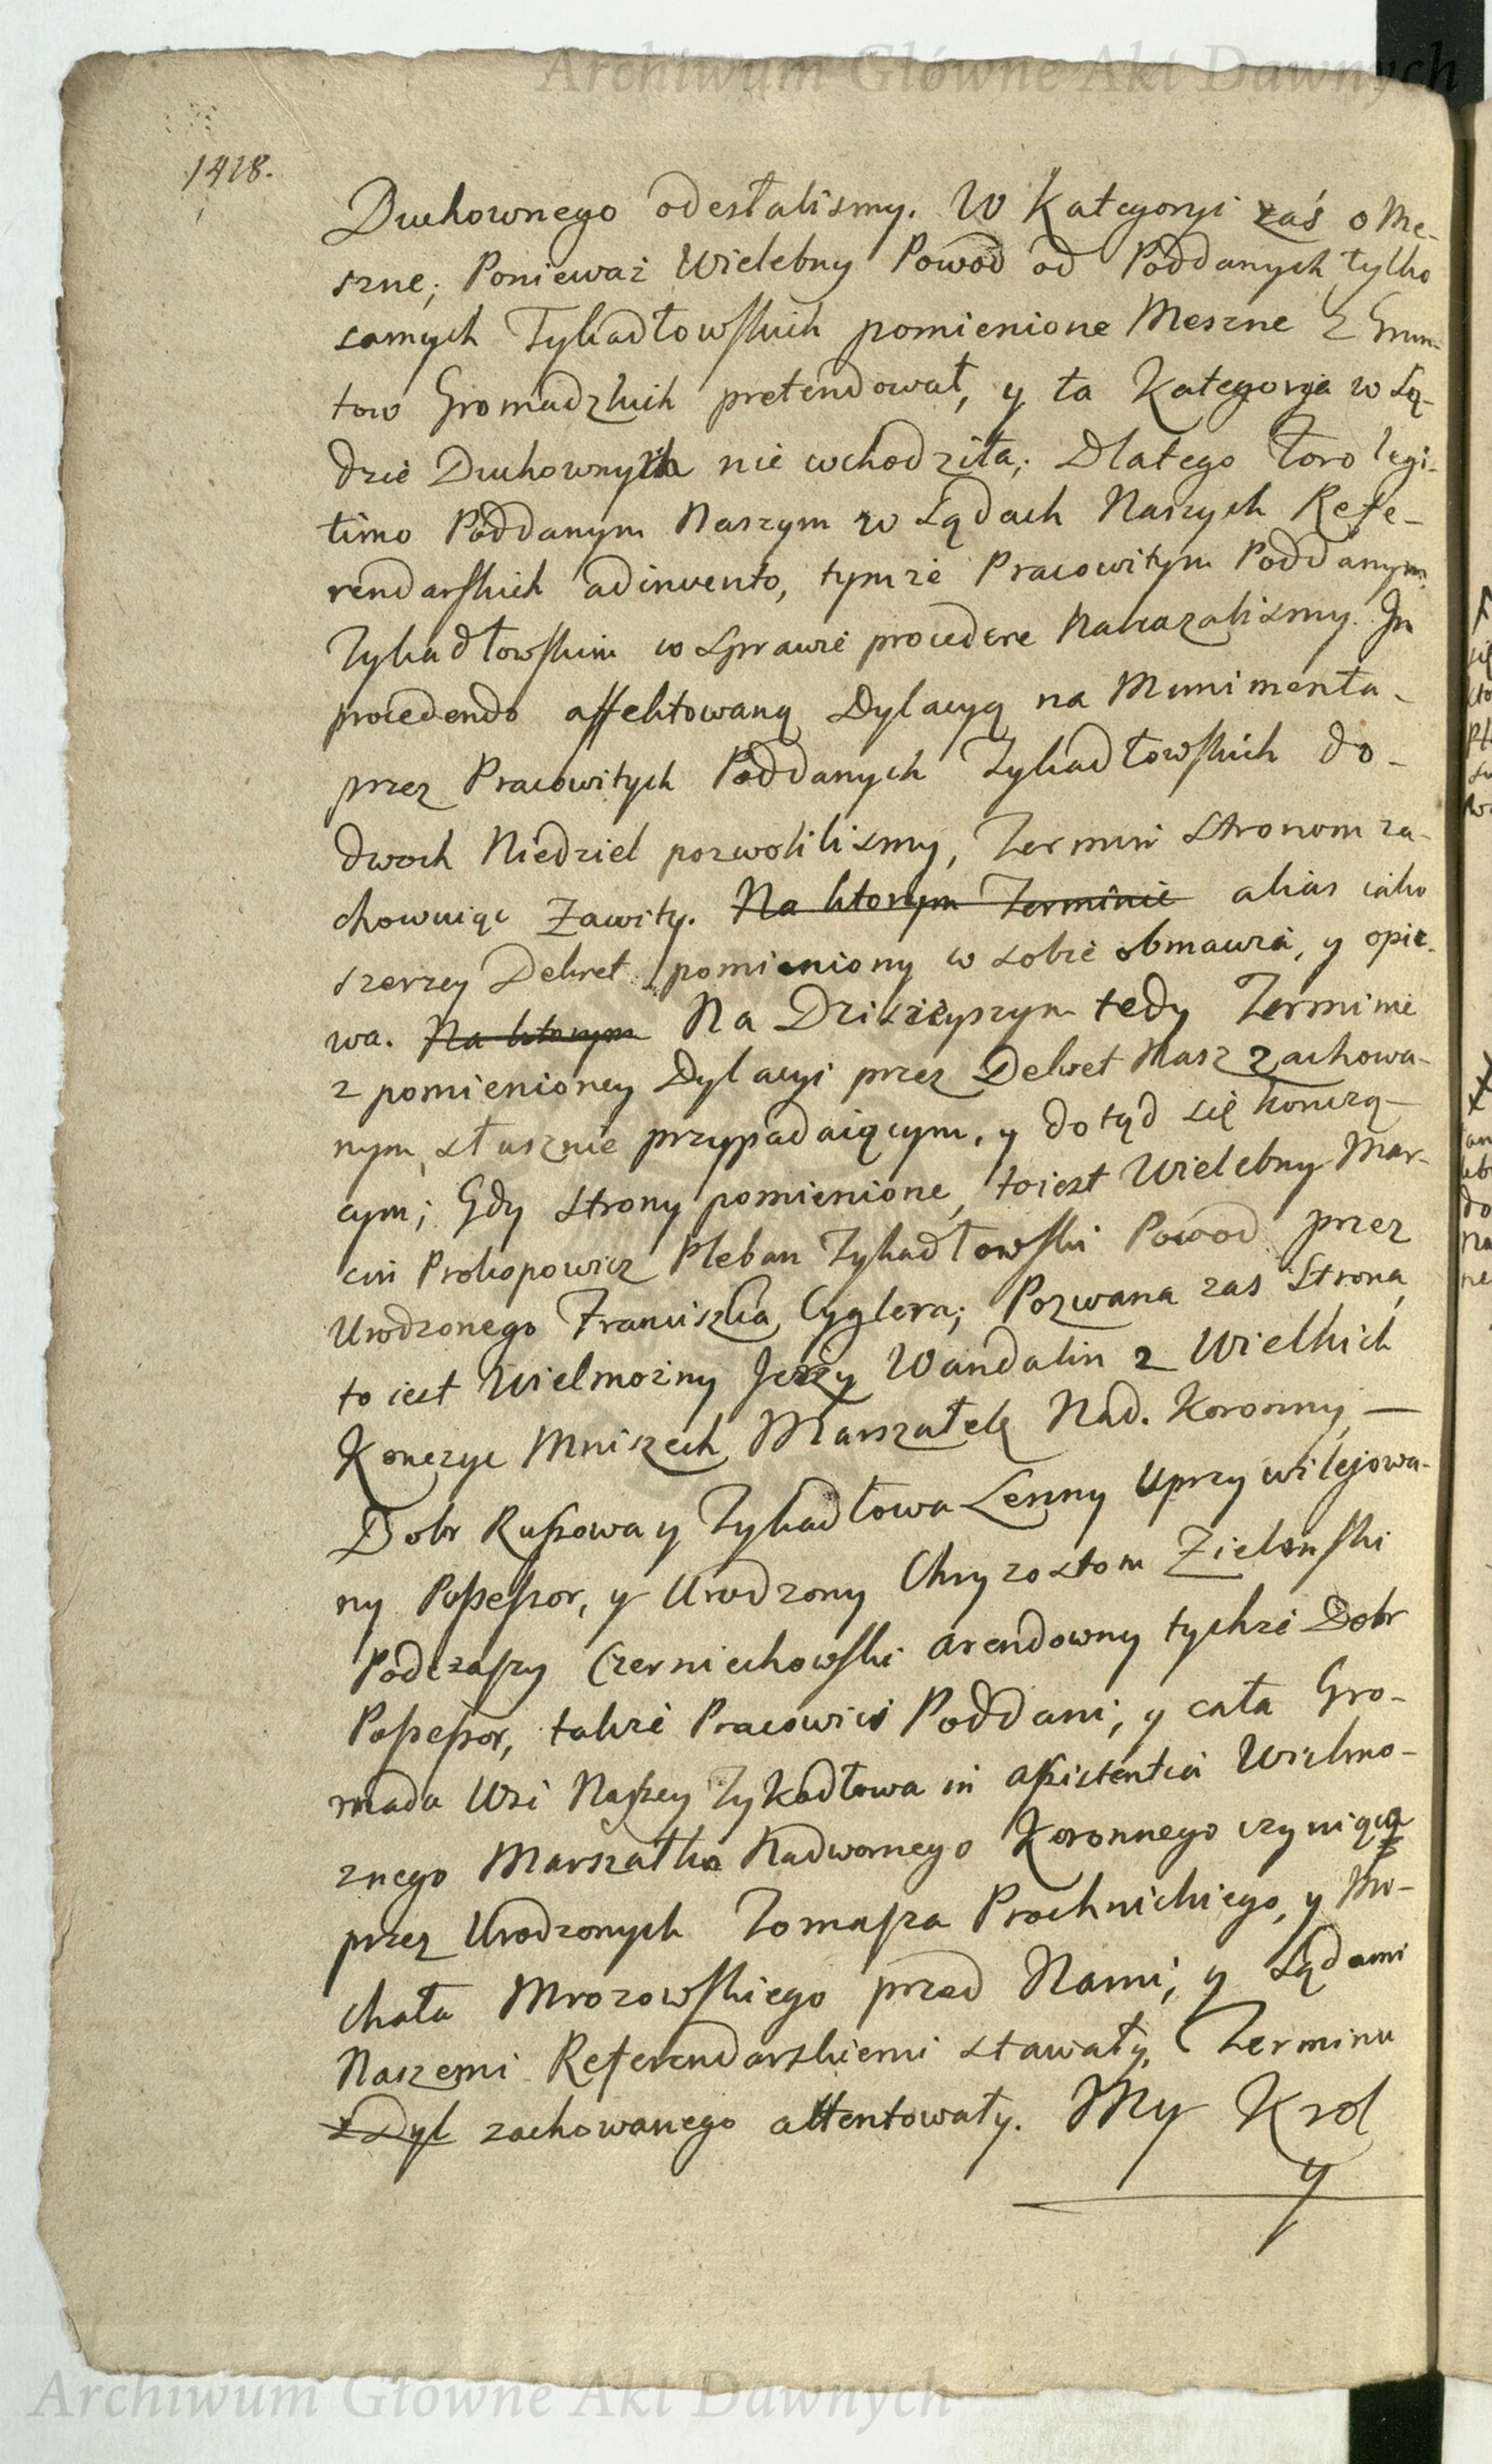 Archiwum Główne Akt Dawnych
1418.
Duchownego odesłalismy. W Kategoryi zaś o Me-
szne; Ponieważ Wielebny Powod od Poddanych tylko
samych Tykadłowskich pomienione Meszne z Grun-
tow Gromadzkich pretendował, y ta Kategorya w Są-
dzie Duchownych nie wchodziła; Dlatego Foro legi-
timo Poddanym Naszym w Sądach Naszych Refe-
rendarskich adinvento, tymże Pracowitym Poddanym
Tykadłowskim w Sprawie procedere Nakazalismy. In
procedendo affektowaną Dylacyą na Munimenta
przez Pracowitych Poddanych Tykadłowskich do-
dwoch Niedziel pozwolilismy, Termin Stronom za-
chowuiąc Zawity. Na ktorym Terminie alias iako
szerzey Dekret pomieniony w sobie obmawia, y opie-
wa. Na ktorym Na Dzisieyszym tedy Terminie
z pomienioney Dylacyi przez Dekret Nasz zachowa-
nym, słusznie przypadaiącym, y dotąd się konczą-
cym; Gdy strony pomienione, toiest Wielebny Mar-
cin Prokopowicz Pleban Tykadłowski Powod przez
Urodzonego Franciszka Cyglera; Pozwana zas Strona,
to iest Wielmożny Jerzy Wandalin z Wielkich
Konczyc Mniszech Marszałek Nad. Koronny —
Dobr Ruszowa y Tykadłowa Lenny Uprzywilejowa-
ny Possessor, y Urodzony Chryzostom Zielonski
Podczaszy Czerniechowski arendowny tychże Dobr
Possessor, także Pracowici Poddani, y cała Gro-
mada Wsi Naszey Tykadłowa in assistentia Wielmo-
znego Marszałka Nadwornego Koronnego czyniąca
przez Urodzonych Tomasza Prochnickiego, y Mi-
chała Mrozowskiego przed Nami, y Sądami
Naszemi Referendarskiemi stawały, Terminu
z Dyl zachowanego attentowały. My Krol
y
Archiwum Główne Akt Dawnych